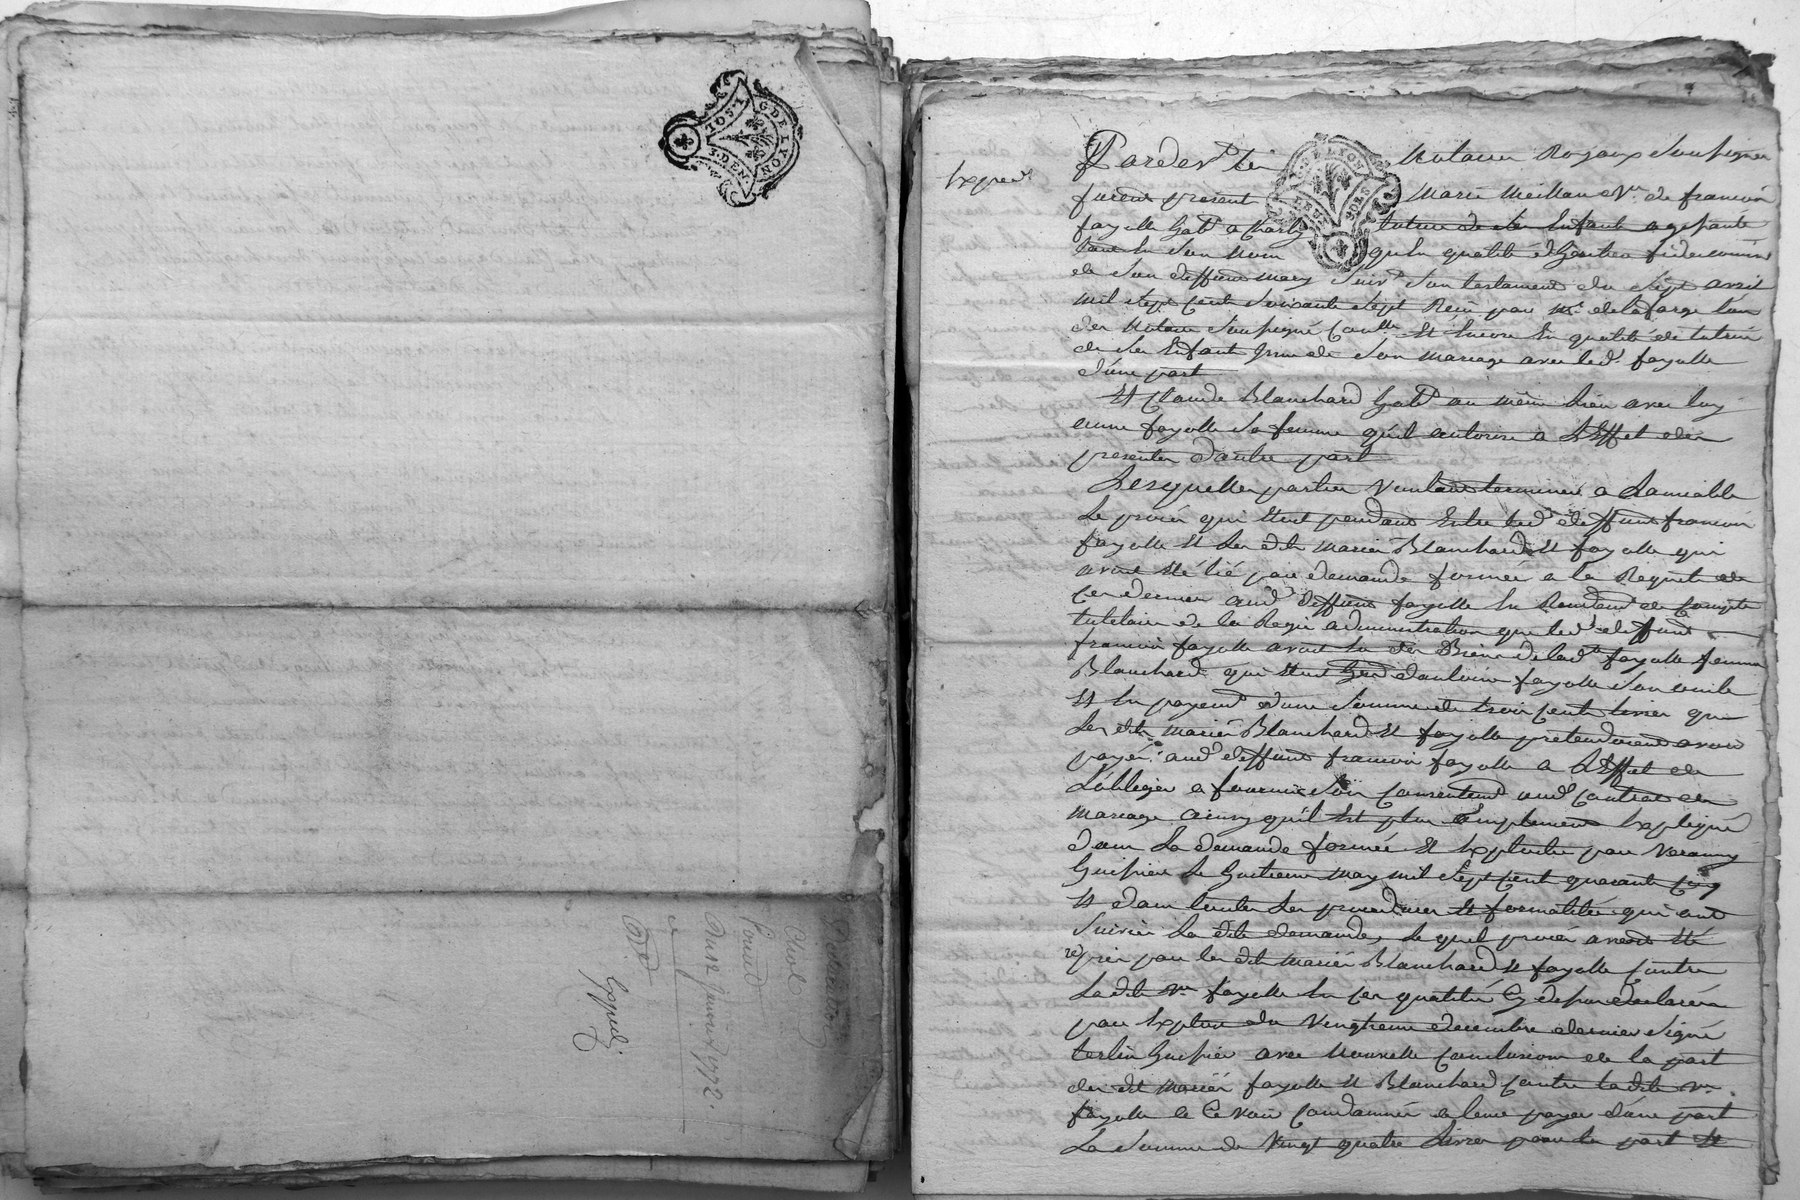 G. DE LYON
1. SOL
3. DEN.
Olive
onze Janvier 1772.
Expedié
Exped.
G. DE LYON
DEUX SOLS
Pardevt les Notaires Royaux soussignés
furent present Marie Meillan ve. de francois
fayolle habt. a Charly tutrice de ses Enfants agissante
tant en son nom qu'en qualité d'heritiere fideicommise
de son deffunt mary suivt. son testament du sept avril
mil sept cent soixante sept Reçu par Me. delafarge l'un
des Notaires soussigné et encore en qualité de tutrice
de ses Enfants issus de son mariage avec led. fayolle
d'une part
Et Claude Blanchard habt. au même lieu avec luy
anne fayolle sa femme qu'il autorise a l'Effet des
presentes d'autre part
Lesquelles parties voulant terminer a L'amiable
Le procès qui etoit pendant Entre led. deffunt francois
fayolle et les dits mariés Blanchard et fayolle qui
avoit été lié par demande formée a la Requete de
ces derniers aud. deffunt fayolle en Reddon. de compte
tutelaire de la Regie administration que led. deffunt
francois fayolle avoit eu des Biens de lad. fayolle femme
Blanchard qui etoit fayolle son oncle
et en payemt. d'une somme de trois cents livres que
Les dits mariés Blanchard et fayolle pretendoient avoir
payé aud. deffunt francois fayolle a l'Effet de
L'obliger a fournir son consentemt. aud. contrat de
mariage ainsy qu'il est plus amplement Expliqué
dans La demande formée et Exploitée par
huissier le huitieme may mil sept cent quarante cinq
et dans toutes les procedures et formalités qui ont
suivies La dite demande, le quel procès auroit été
repris par les dits mariés Blanchard et fayolle contre
La dite ve. fayolle en ces qualités cy depur declarées
par Exploit du vingtieme decembre dernier signé
terlin huissier avec nouvelle conclusions de la part
des dits mariés fayolle et Blanchard contre la dite ve.
fayolle a se voir condamnée a leur payer d'une part
La somme de vingt quatre Livres pour la part et